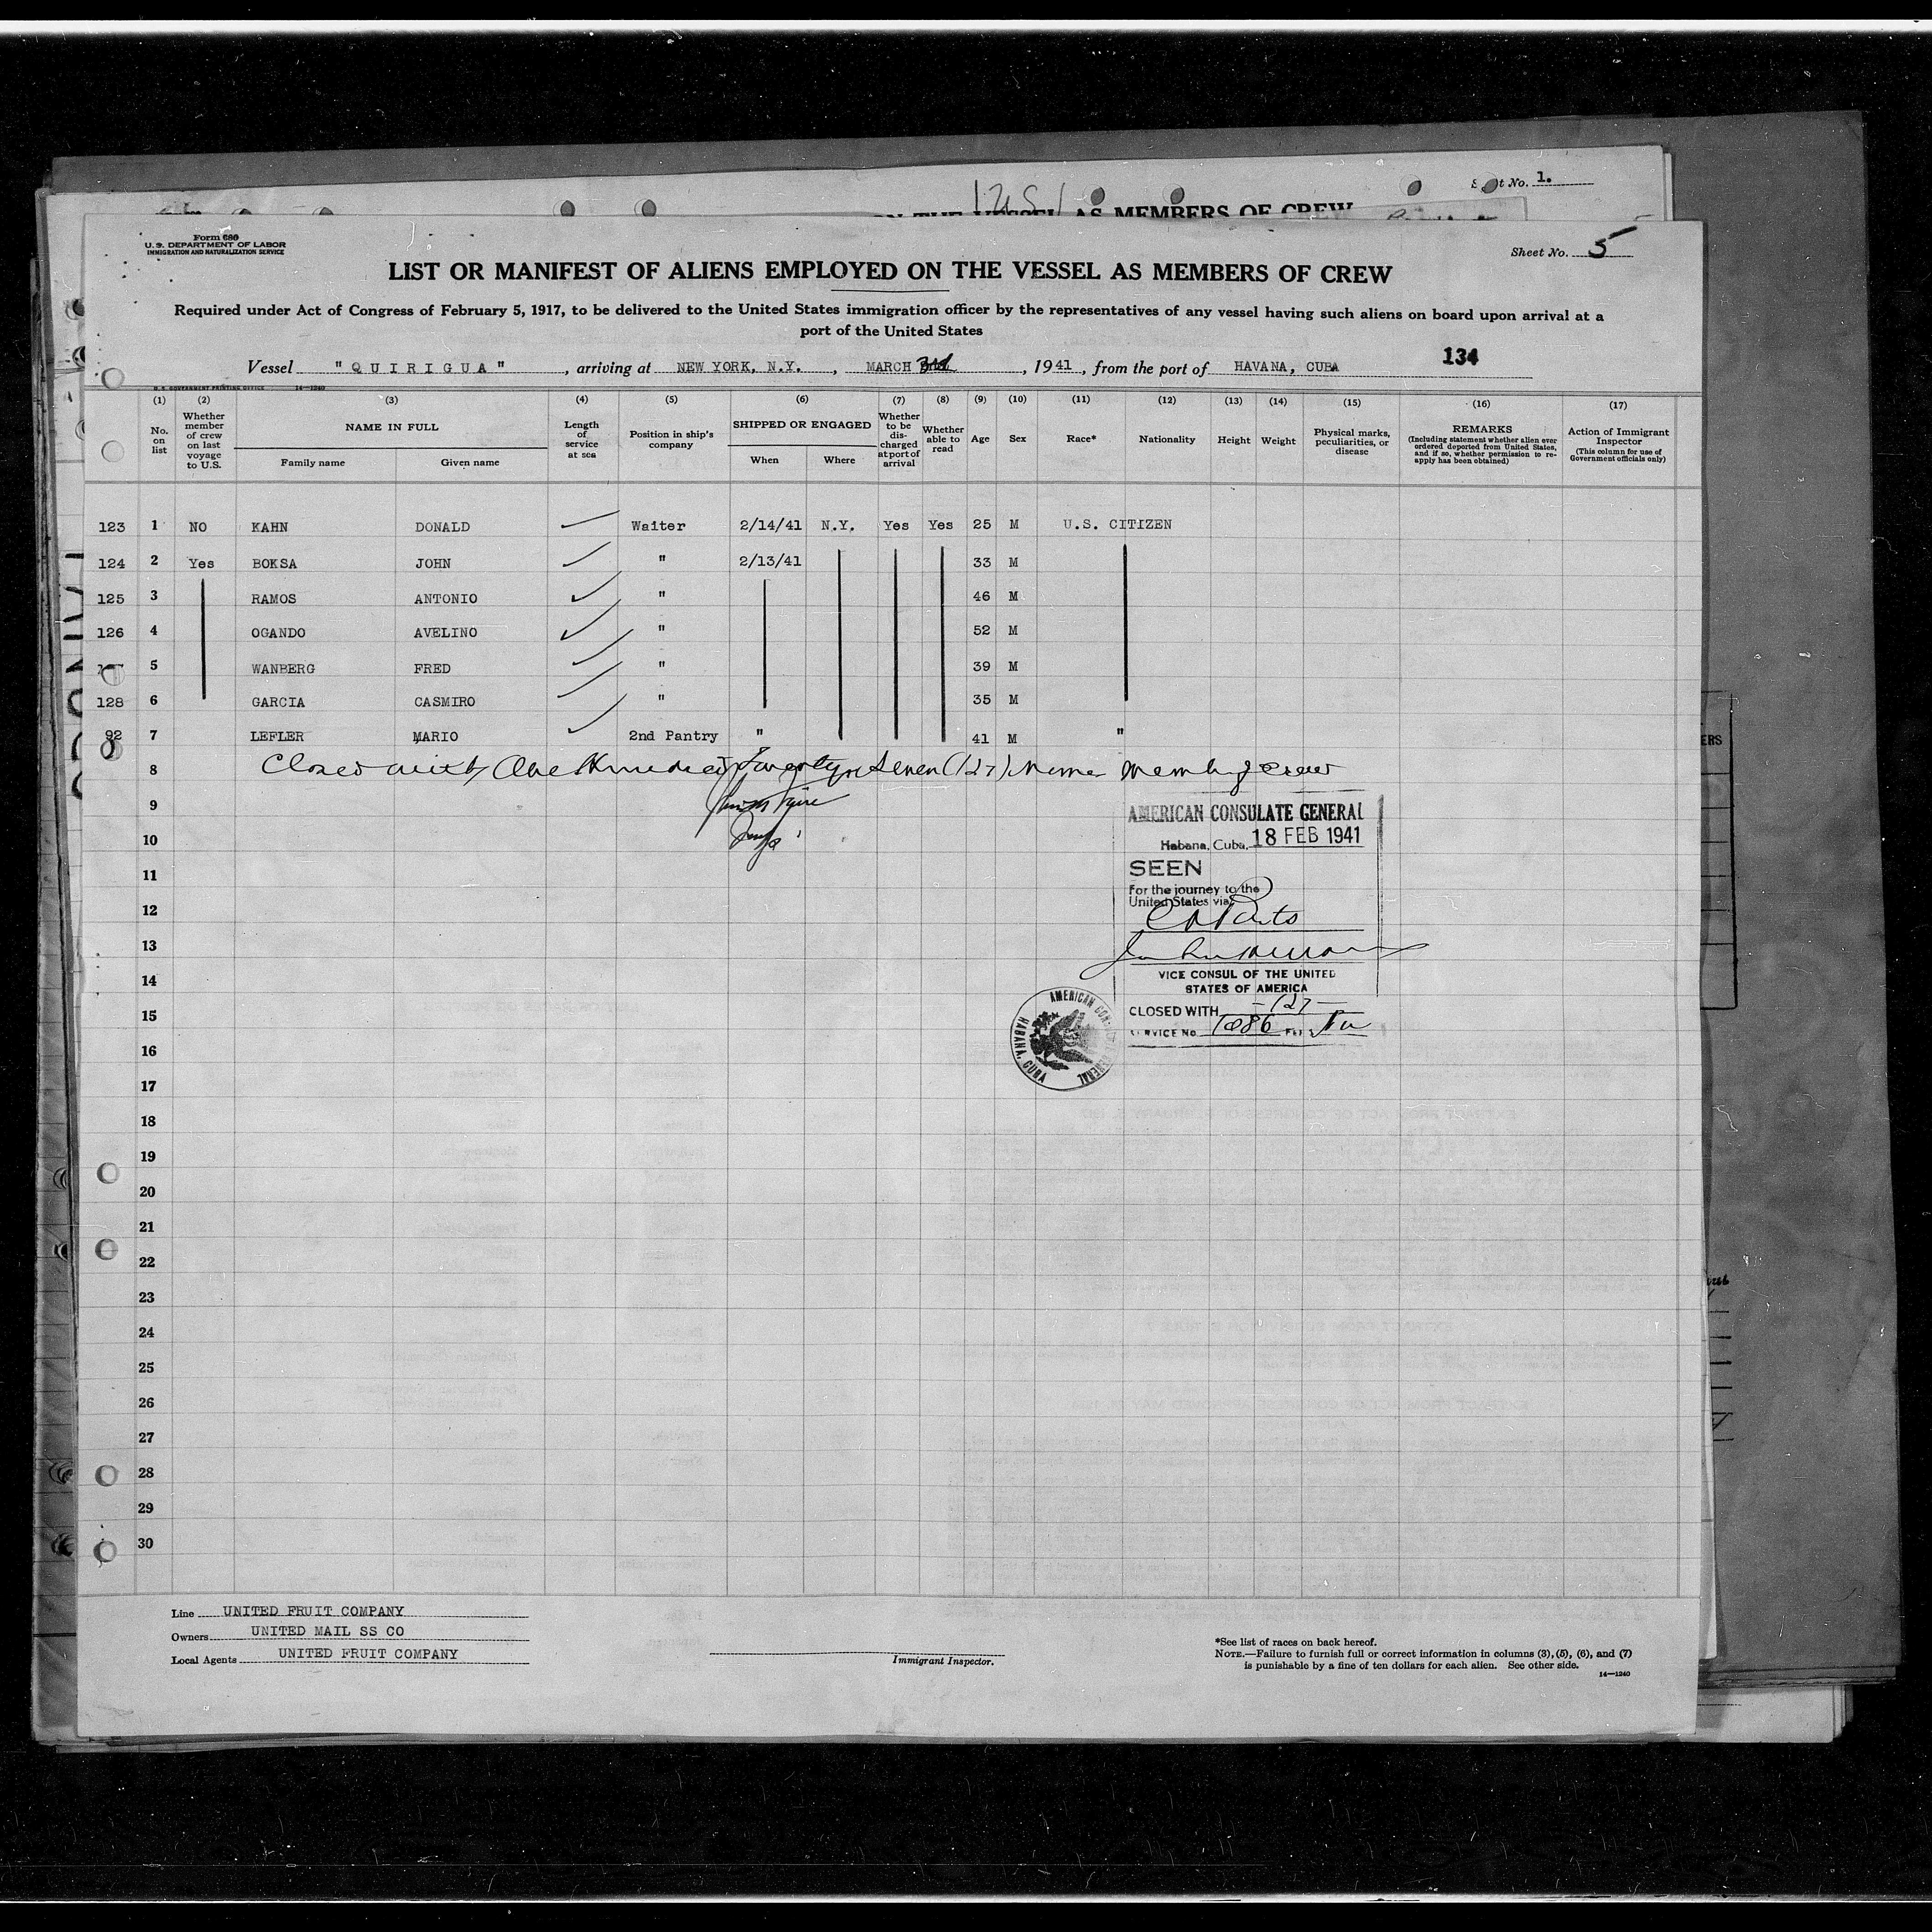 Sheet No. 1.
ON THE VESSEL AS MEMBERS OF CREW
Form 680
U. S. DEPARTMENT OF LABOR
IMMIGRATION AND NATURALIZATION SERVICE
Sheet No. 5
LIST OR MANIFEST OF ALIENS EMPLOYED ON THE VESSEL AS MEMBERS OF CREW
Required under Act of Congress of February 5, 1917, to be delivered to the United States immigration officer by the representatives of any vessel having such aliens on board upon arrival at a
port of the United States
Vessel "QUIRIGUA", arriving at NEW YORK, N.Y., MARCH 3rd, 1941, from the port of HAVANA, CUBA 134
U. S. GOVERNMENT PRINTING OFFICE 14—1240
(1) (2) (3) (4) (5) (6) (7) (8) (9) (10) (11) (12) (13) (14) (15) (16) (17)
No. on list
Whether member of crew on last voyage to U.S.
NAME IN FULL
Family name Given name
Length of service at sea
Position in ship's company
SHIPPED OR ENGAGED
When Where
Whether to be discharged at port of arrival
Whether able to read
Age Sex Race* Nationality Height Weight
Physical marks, peculiarities, or disease
REMARKS
(Including statement whether alien ever ordered deported from United States, and if so, whether permission to reapply has been obtained)
Action of Immigrant Inspector
(This column for use of Government officials only)
123 1 NO KAHN DONALD Waiter 2/14/41 N.Y. Yes Yes 25 M U.S. CITIZEN
124 2 Yes BOKSA JOHN " 2/13/41 33 M
125 3 RAMOS ANTONIO " 46 M
126 4 OGANDO AVELINO " 52 M
5 WANBERG FRED " 39 M
128 6 GARCIA CASMIRO " 35 M
92 7 LEFLER MARIO 2nd Pantry " 41 M "
8 Closed with One Hundred Twenty Seven (127) Members crew
9
10
11
12
13
14
15
16
17
18
19
20
21
22
23
24
25
26
27
28
29
30
AMERICAN CONSULATE GENERAL
Habana, Cuba, 18 FEB 1941
SEEN
For the journey to the
United States via
VICE CONSUL OF THE UNITED
STATES OF AMERICA
CLOSED WITH -127-
SERVICE No. 1086
AMERICAN CONSULATE GENERAL
HABANA, CUBA
Line UNITED FRUIT COMPANY
Owners UNITED MAIL SS CO
Local Agents UNITED FRUIT COMPANY
Immigrant Inspector.
*See list of races on back hereof.
NOTE.—Failure to furnish full or correct information in columns (3), (5), (6), and (7)
is punishable by a fine of ten dollars for each alien. See other side.
14—1240